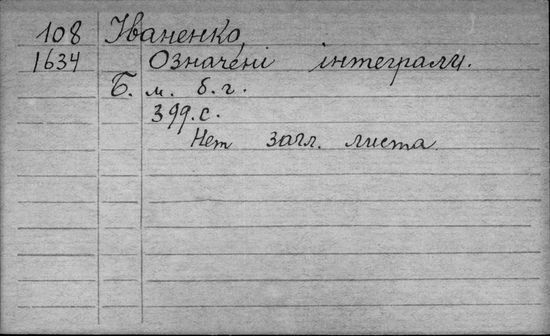 108 Іваненко,
1634 Означені інтеграли.
Б. м. б. г.
399. с.
Нет загл. листа.